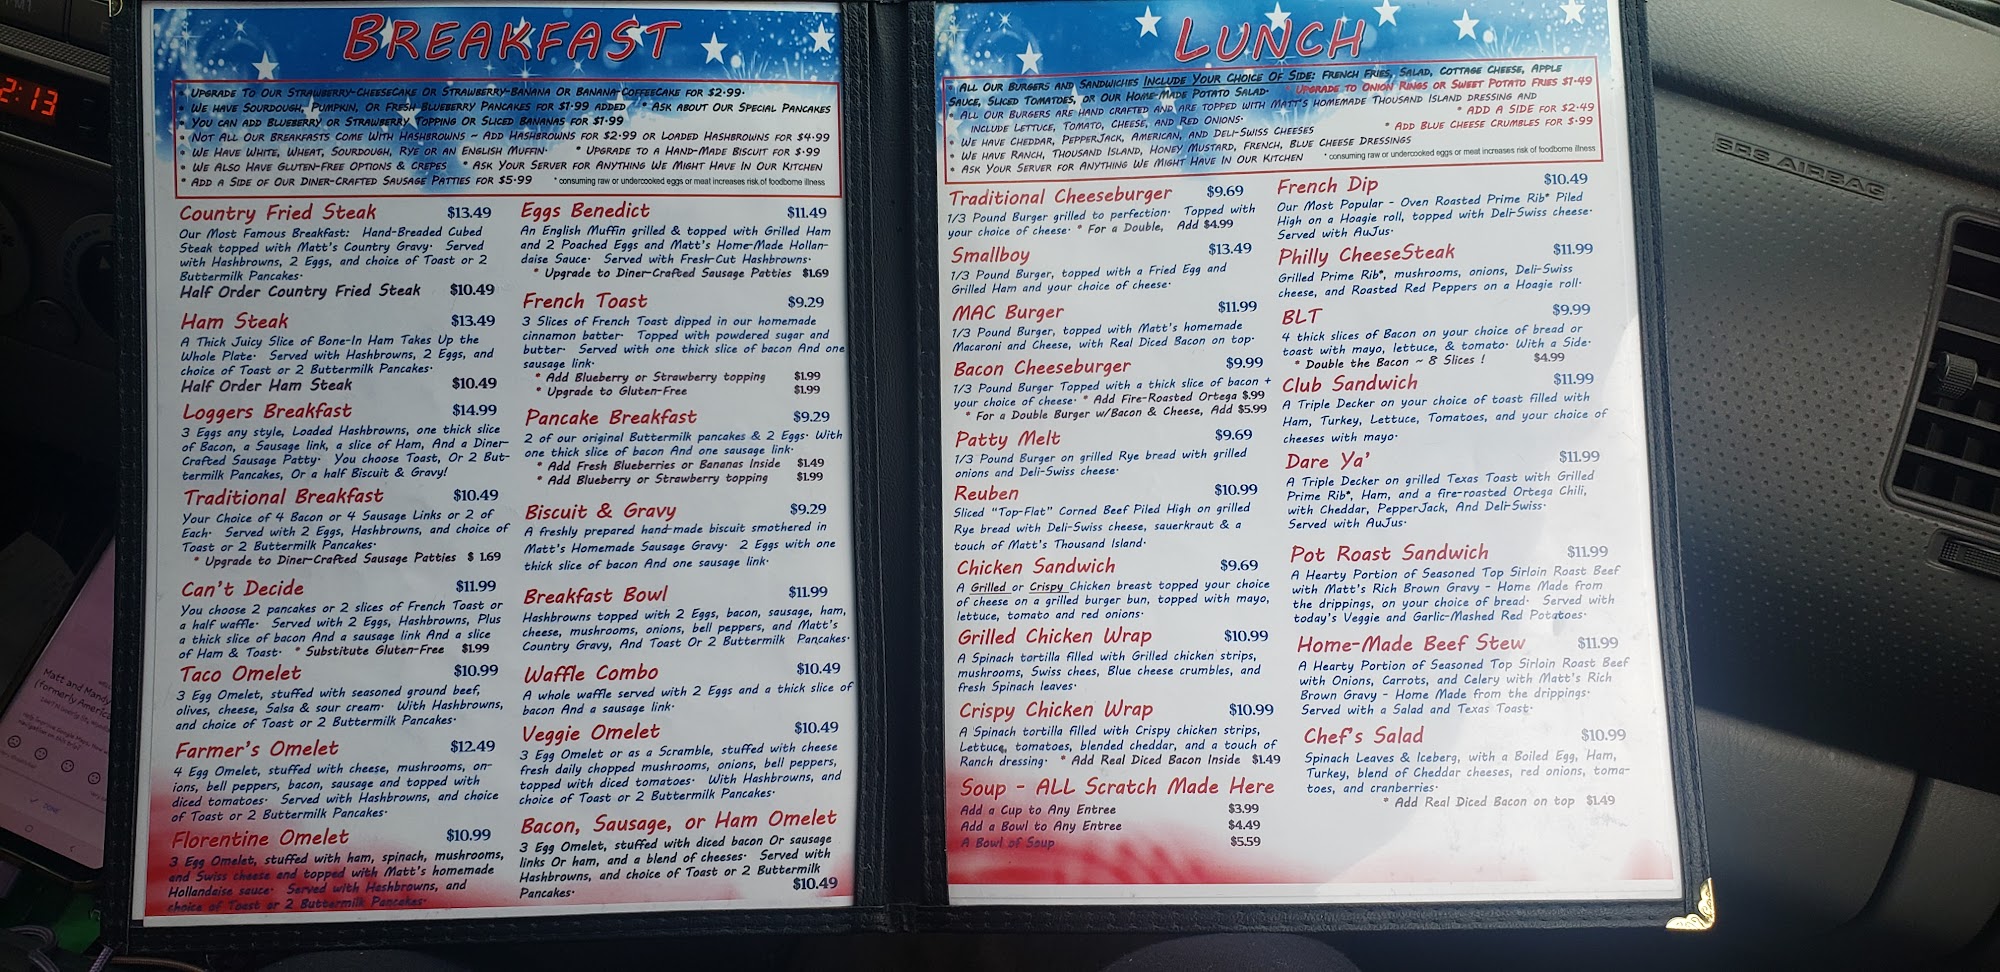 2:13
BREAKFAST
UPGRADE TO OUR STRAWBERRY-CHEESECAKE OR STRAWBERRY-BANANA OR BANANA-COFFEECAKE FOR $2.99.
• WE HAVE SOURDOUGH, PUMPKIN, OR FRESH BLUEBERRY PANCAKES FOR $1.99 ADDED * ASK ABOUT OUR SPECIAL PANCAKES
• YOU CAN ADD BLUEBERRY OR STRAWBERRY TOPPING OR SLICED BANANAS FOR $1.99
• NOT ALL OUR BREAKFASTS COME WITH HASHBROWNS ~ ADD HASHBROWNS FOR $2.99 OR LOADED HASHBROWNS FOR $4.99
• WE HAVE WHITE, WHEAT, SOURDOUGH, RYE OR AN ENGLISH MUFFIN. * UPGRADE TO A HAND-MADE BISCUIT FOR $.99
• WE ALSO HAVE GLUTEN-FREE OPTIONS & CREPES * ASK YOUR SERVER FOR ANYTHING WE MIGHT HAVE IN OUR KITCHEN
• ADD A SIDE OF OUR DINER-CRAFTED SAUSAGE PATTIES FOR $5.99 * consuming raw or undercooked eggs or meat increases risk of foodborne illness
Country Fried Steak $13.49
Our Most Famous Breakfast: Hand-Breaded Cubed
Steak topped with Matt's Country Gravy. Served
with Hashbrowns, 2 Eggs, and choice of Toast or 2
Buttermilk Pancakes.
Half Order Country Fried Steak $10.49
Ham Steak $13.49
A Thick Juicy Slice of Bone-In Ham Takes Up the
Whole Plate. Served with Hashbrowns, 2 Eggs, and
choice of Toast or 2 Buttermilk Pancakes.
Half Order Ham Steak $10.49
Loggers Breakfast $14.99
3 Eggs any style, Loaded Hashbrowns, one thick slice
of Bacon, a Sausage link, a slice of Ham, And a Diner-
Crafted Sausage Patty. You choose Toast, Or 2 But-
termilk Pancakes, Or a half Biscuit & Gravy!
Traditional Breakfast $10.49
Your Choice of 4 Bacon or 4 Sausage Links or 2 of
Each. Served with 2 Eggs, Hashbrowns, and choice of
Toast or 2 Buttermilk Pancakes.
* Upgrade to Diner-Crafted Sausage Patties $ 1.69
Can't Decide $11.99
You choose 2 pancakes or 2 slices of French Toast or
a half waffle. Served with 2 Eggs, Hashbrowns, Plus
a thick slice of bacon And a sausage link And a slice
of Ham & Toast. * Substitute Gluten-Free $1.99
Taco Omelet $10.99
3 Egg Omelet, stuffed with seasoned ground beef,
olives, cheese, Salsa & sour cream. With Hashbrowns,
and choice of Toast or 2 Buttermilk Pancakes.
Farmer's Omelet $12.49
4 Egg Omelet, stuffed with cheese, mushrooms, on-
ions, bell peppers, bacon, sausage and topped with
diced tomatoes. Served with Hashbrowns, and choice
of Toast or 2 Buttermilk Pancakes.
Florentine Omelet $10.99
3 Egg Omelet, stuffed with ham, spinach, mushrooms,
and Swiss cheese and topped with Matt's homemade
Hollandaise sauce. Served with Hashbrowns, and
choice of Toast or 2 Buttermilk Pancakes.
Eggs Benedict $11.49
An English Muffin grilled & topped with Grilled Ham
and 2 Poached Eggs and Matt's Home-Made Hollan-
daise Sauce. Served with Fresh-Cut Hashbrowns.
* Upgrade to Diner-Crafted Sausage Patties $1.69
French Toast $9.29
3 Slices of French Toast dipped in our homemade
cinnamon batter. Topped with powdered sugar and
butter. Served with one thick slice of bacon And one
sausage link.
* Add Blueberry or Strawberry topping $1.99
* Upgrade to Gluten-Free $1.99
Pancake Breakfast $9.29
2 of our original Buttermilk pancakes & 2 Eggs. With
one thick slice of bacon And one sausage link.
* Add Fresh Blueberries or Bananas Inside $1.49
* Add Blueberry or Strawberry topping $1.99
Biscuit & Gravy $9.29
A freshly prepared hand-made biscuit smothered in
Matt's Homemade Sausage Gravy. 2 Eggs with one
thick slice of bacon And one sausage link.
Breakfast Bowl $11.99
Hashbrowns topped with 2 Eggs, bacon, sausage, ham,
cheese, mushrooms, onions, bell peppers, and Matt's
Country Gravy, And Toast Or 2 Buttermilk Pancakes.
Waffle Combo $10.49
A whole waffle served with 2 Eggs and a thick slice of
bacon And a sausage link.
Veggie Omelet $10.49
3 Egg Omelet or as a Scramble, stuffed with cheese
fresh daily chopped mushrooms, onions, bell peppers,
topped with diced tomatoes. With Hashbrowns, and
choice of Toast or 2 Buttermilk Pancakes.
Bacon, Sausage, or Ham Omelet
3 Egg Omelet, stuffed with diced bacon Or sausage
links Or ham, and a blend of cheeses. Served with
Hashbrowns, and choice of Toast or 2 Buttermilk
Pancakes. $10.49
LUNCH
• ALL OUR BURGERS AND SANDWICHES INCLUDE YOUR CHOICE OF SIDE: FRENCH FRIES, SALAD, COTTAGE CHEESE, APPLE
SAUCE, SLICED TOMATOES, OR OUR HOME-MADE POTATO SALAD. * UPGRADE TO ONION RINGS OR SWEET POTATO FRIES $1.49
• ALL OUR BURGERS ARE HAND CRAFTED AND ARE TOPPED WITH MATT'S HOMEMADE THOUSAND ISLAND DRESSING AND
INCLUDE LETTUCE, TOMATO, CHEESE, AND RED ONIONS. * ADD A SIDE FOR $2.49
• WE HAVE CHEDDAR, PEPPERJACK, AMERICAN, AND DELI-SWISS CHEESES * ADD BLUE CHEESE CRUMBLES FOR $.99
• WE HAVE RANCH, THOUSAND ISLAND, HONEY MUSTARD, FRENCH, BLUE CHEESE DRESSINGS
• ASK YOUR SERVER FOR ANYTHING WE MIGHT HAVE IN OUR KITCHEN * consuming raw or undercooked eggs or meat increases risk of foodborne illness
Traditional Cheeseburger $9.69
1/3 Pound Burger grilled to perfection. Topped with
your choice of cheese. * For a Double, Add $4.99
Smallboy $13.49
1/3 Pound Burger, topped with a Fried Egg and
Grilled Ham and your choice of cheese.
MAC Burger $11.99
1/3 Pound Burger, topped with Matt's homemade
Macaroni and Cheese, with Real Diced Bacon on top.
Bacon Cheeseburger $9.99
1/3 Pound Burger Topped with a thick slice of bacon +
your choice of cheese. * Add Fire-Roasted Ortega $.99
* For a Double Burger w/Bacon & Cheese, Add $5.99
Patty Melt $9.69
1/3 Pound Burger on grilled Rye bread with grilled
onions and Deli-Swiss cheese.
Reuben $10.99
Sliced "Top-Flat" Corned Beef Piled High on grilled
Rye bread with Deli-Swiss cheese, sauerkraut & a
touch of Matt's Thousand Island.
Chicken Sandwich $9.69
A Grilled or Crispy Chicken breast topped your choice
of cheese on a grilled burger bun, topped with mayo,
lettuce, tomato and red onions.
Grilled Chicken Wrap $10.99
A Spinach tortilla filled with Grilled chicken strips,
mushrooms, Swiss chees, Blue cheese crumbles, and
fresh Spinach leaves.
Crispy Chicken Wrap $10.99
A Spinach tortilla filled with Crispy chicken strips,
Lettuce, tomatoes, blended cheddar, and a touch of
Ranch dressing. * Add Real Diced Bacon Inside $1.49
Soup - ALL Scratch Made Here
Add a Cup to Any Entree $3.99
Add a Bowl to Any Entree $4.49
A Bowl of Soup $5.59
French Dip $10.49
Our Most Popular - Oven Roasted Prime Rib* Piled
High on a Hoagie roll, topped with Deli-Swiss cheese.
Served with AuJus.
Philly CheeseSteak $11.99
Grilled Prime Rib*, mushrooms, onions, Deli-Swiss
cheese, and Roasted Red Peppers on a Hoagie roll.
BLT $9.99
4 thick slices of Bacon on your choice of bread or
toast with mayo, lettuce, & tomato. With a Side.
* Double the Bacon ~ 8 Slices ! $4.99
Club Sandwich $11.99
A Triple Decker on your choice of toast filled with
Ham, Turkey, Lettuce, Tomatoes, and your choice of
cheeses with mayo.
Dare Ya' $11.99
A Triple Decker on grilled Texas Toast with Grilled
Prime Rib*, Ham, and a fire-roasted Ortega Chili,
with Cheddar, PepperJack, And Deli-Swiss.
Served with AuJus.
Pot Roast Sandwich $11.99
A Hearty Portion of Seasoned Top Sirloin Roast Beef
with Matt's Rich Brown Gravy - Home Made from
the drippings, on your choice of bread. Served with
today's Veggie and Garlic-Mashed Red Potatoes.
Home-Made Beef Stew $11.99
A Hearty Portion of Seasoned Top Sirloin Roast Beef
with Onions, Carrots, and Celery with Matt's Rich
Brown Gravy - Home Made from the drippings.
Served with a Salad and Texas Toast.
Chef's Salad $10.99
Spinach Leaves & Iceberg, with a Boiled Egg, Ham,
Turkey, blend of Cheddar cheeses, red onions, toma-
toes, and cranberries.
* Add Real Diced Bacon on top $1.49
SRS AIRBAG
Matt and Mandy
(formerly Americ